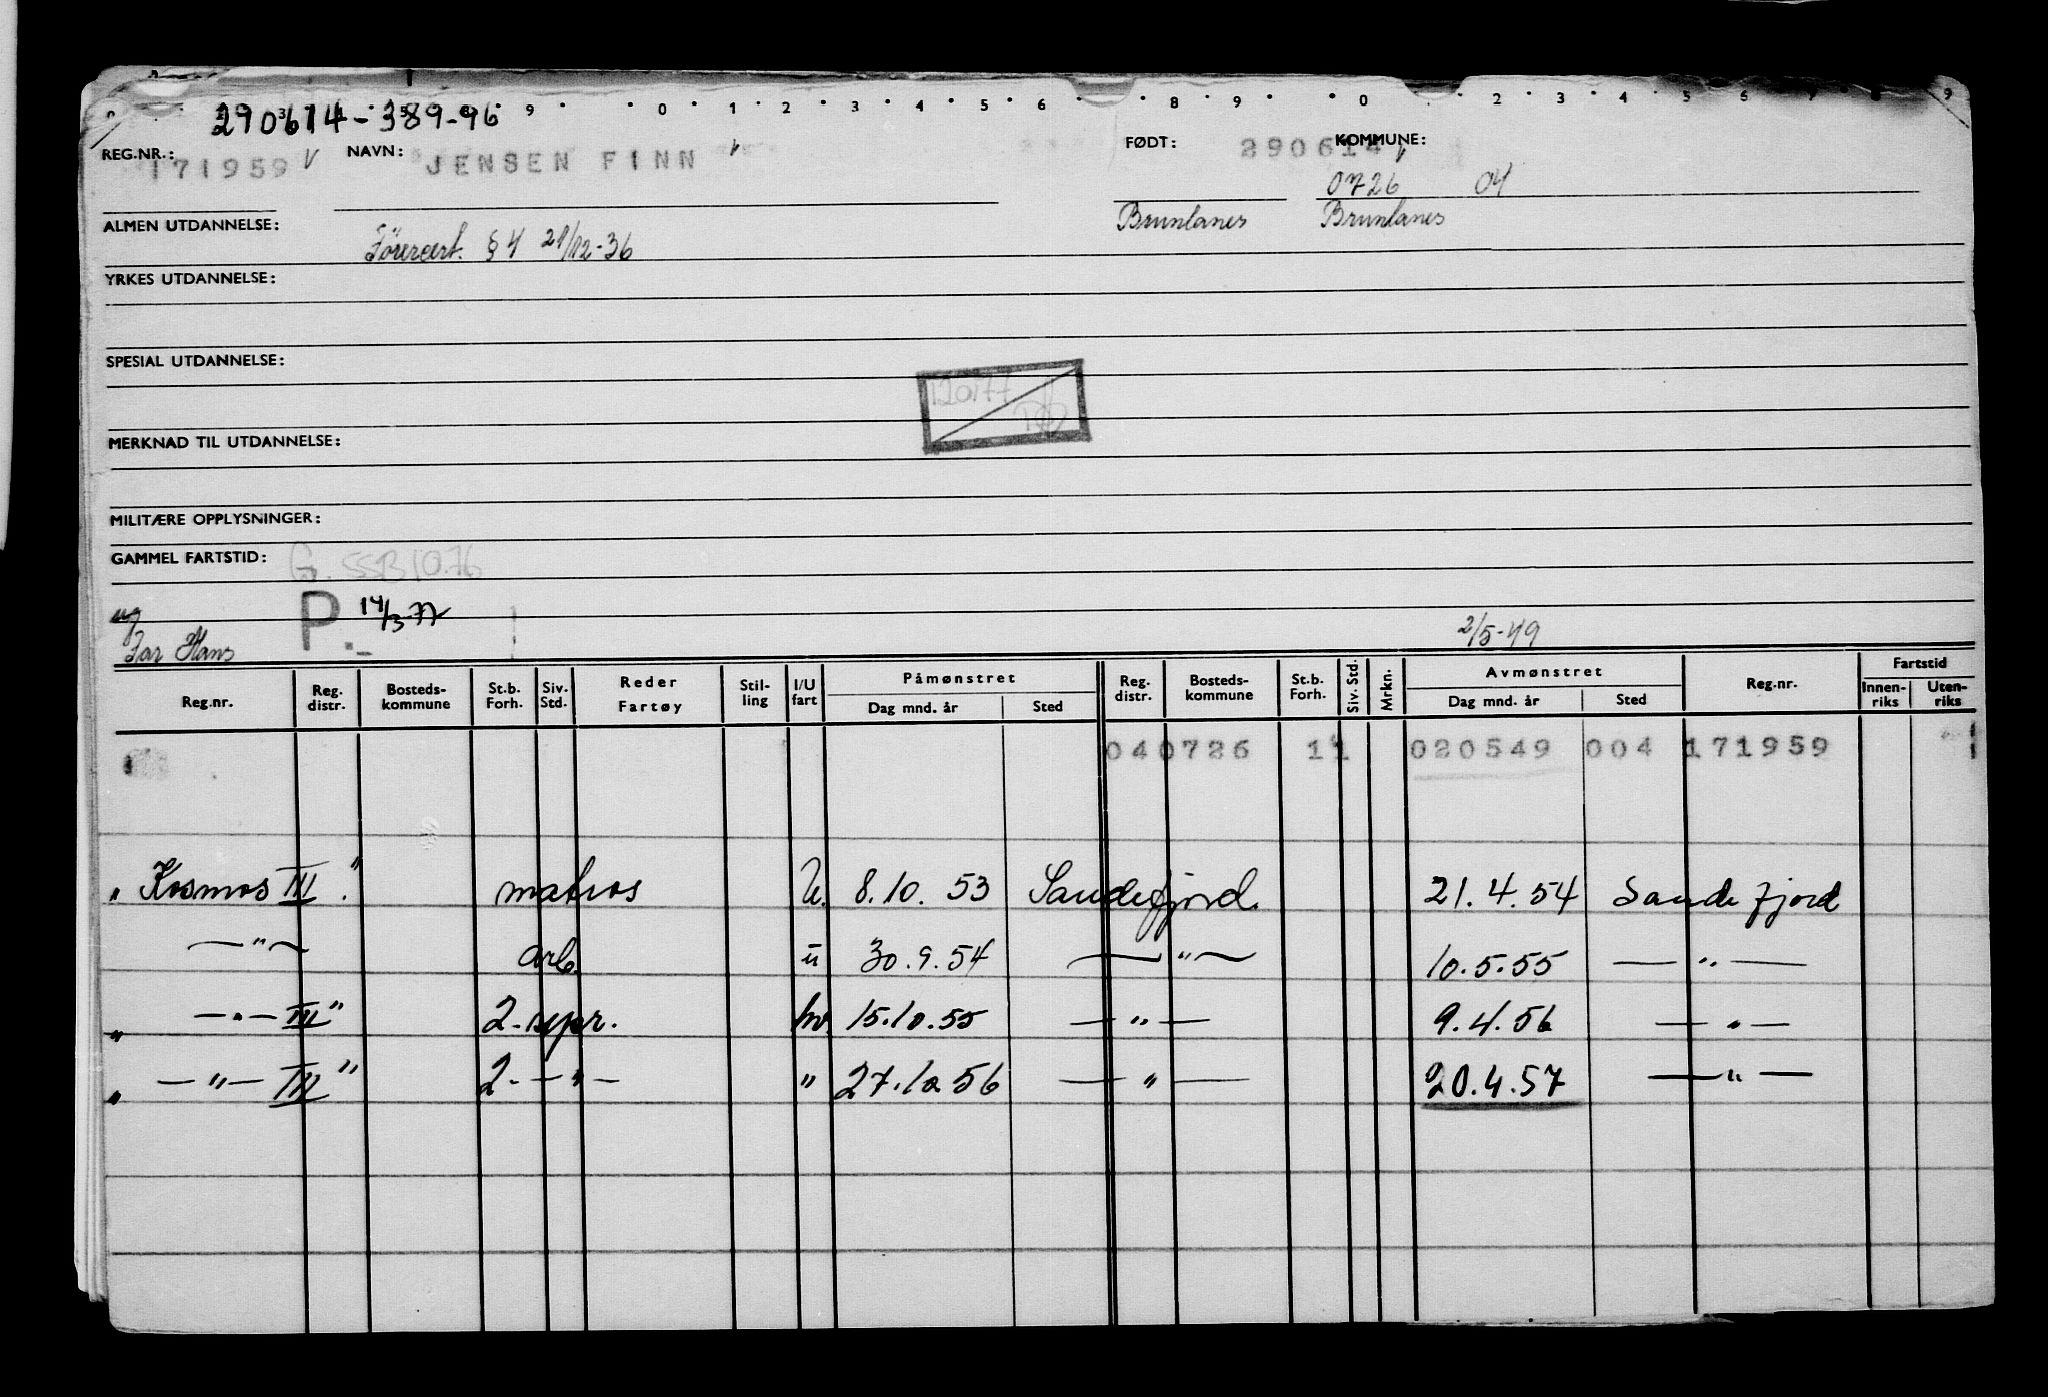 290614-389-96 9 0 1 2 3 4 5 6 8 9 0 2 3 4 5 6 7 8 9
REG.NR.: 171959 NAVN: JENSEN FINN FØDT: 290614 KOMMUNE:
0726 04
ALMEN UTDANNELSE: Brunlanes Brunlanes
Förercert. § 4 21/12-36
YRKES UTDANNELSE:
SPESIAL UTDANNELSE:
120177
MERKNAD TIL UTDANNELSE:
MILITÆRE OPPLYSNINGER:
GAMMEL FARTSTID: G. SSB 10.76
ug P. 14/3-77
Far Hans 2/5-49
Reg.nr. Reg. distr. Bosteds-kommune St.b. Forh. Siv. Std. Reder Fartøy Stil-ling I/U fart Påmønstret Dag mnd. år Sted Reg. distr. Bosteds-kommune St.b. Forh. Siv. Std. Mrkn. Avmønstret Dag mnd. år Sted Reg.nr. Fartstid Innen-riks Uten-riks
040726 11 020549 004 171959
"Kosmos III." matros U. 8.10.53 Sandefjord 21.4.54 Sandefjord
—"— arb. u 30.9.54 —"— 10.5.55 —"—
"—"— III" 2. spr. hv. 15.10.55 —"— 9.4.56 —"—
"—"— III" 2. —"— " 27.10.56 —"— 20.4.57 —"—